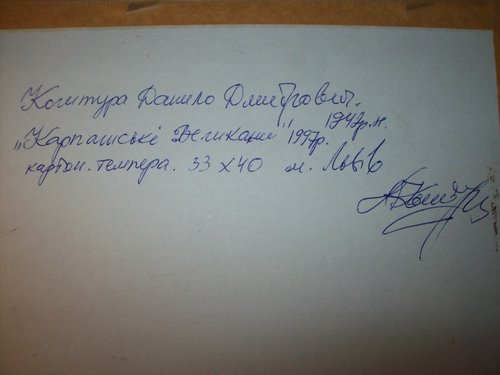 Кошитура Данило Дмитрович.
1942р.н.
„Карпатські Великани" 1997р.
картон. темпера. 33 х 40 м. Львів